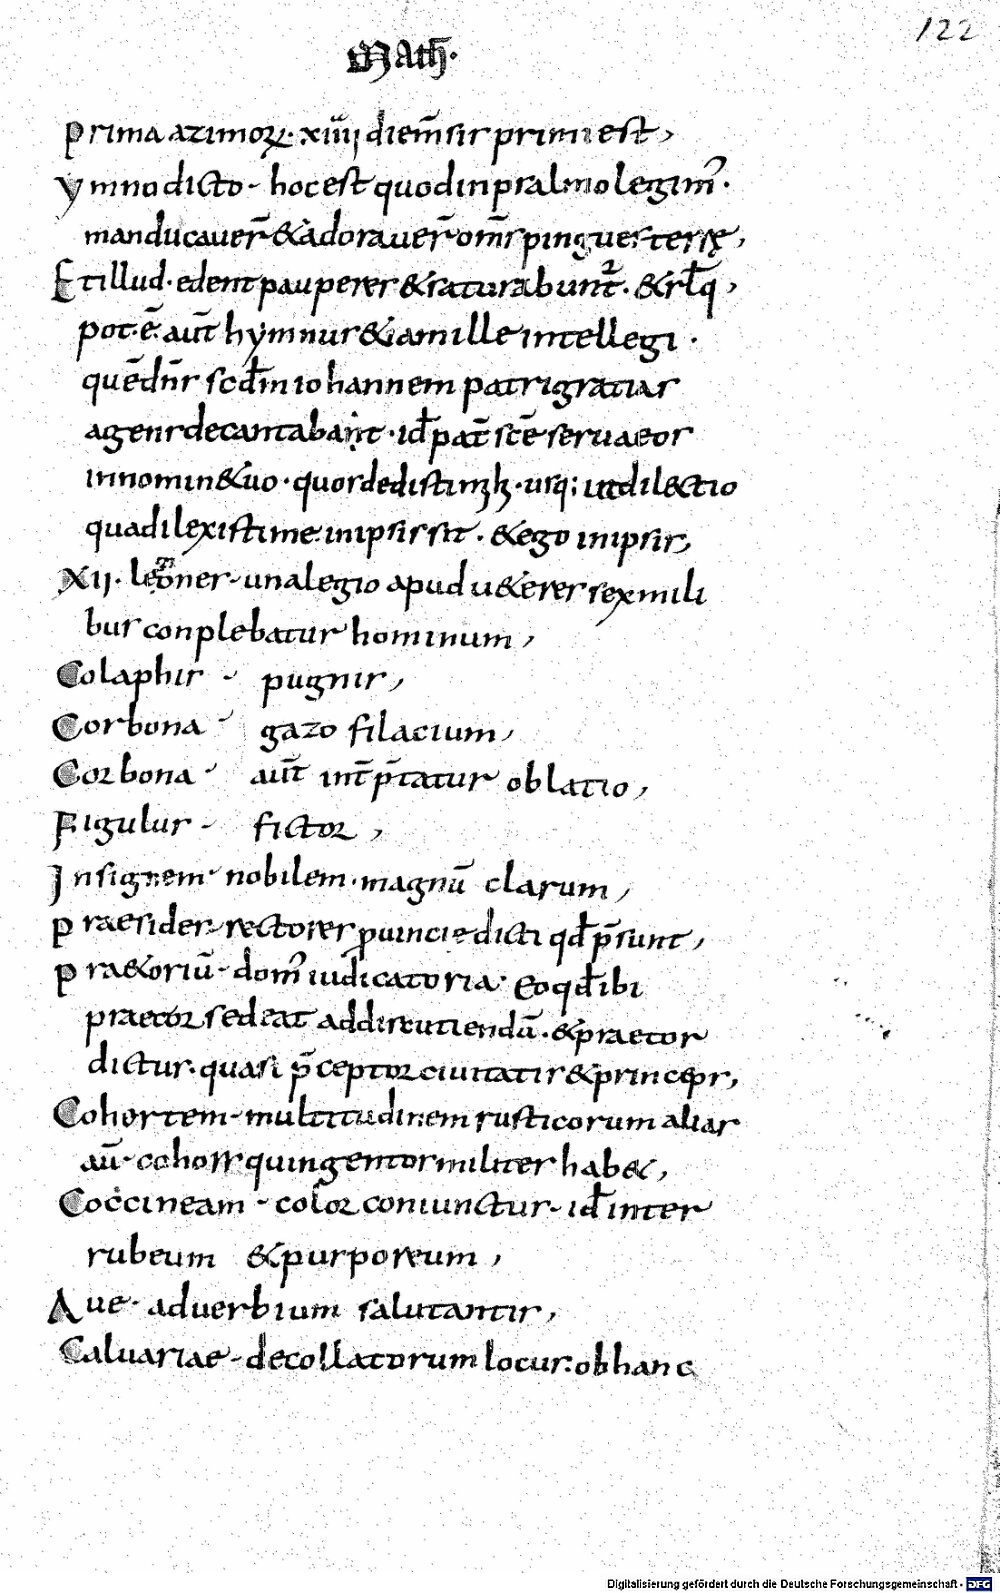 122
Math̄·
Prima azimoꝝ· xiiij diem̄sis primi est,
Ymno dicto- hoc est quod in psalmo legim᾽·
manducauer̄ & adorauer̄ om̄s pingues terrę,
Et illud· edent pauperes & saturabunt᾽· & rl̄q,
pot· ē aut̄ hymnus & iam ille intellegi·
quē dn̄s scdm̄ iohannem patri gratias
agens decantabat· id̄ pat̄ sc̄e serua eos
in nomin& uo· quos dedisti mꝫhꝫ· usq; ut dilectio
qua dilexisti me in ipsis sit· & ego in ipsis,
XII· legiones- una legio apud u&eres sex mili
bus conplebatur hominum,
Colaphis - pugnis,
Corbona - gazofilacium,
Corbona - aut̄ int̄p̄tatur oblatio,
Figulus - fictor,
Insignem· nobilem· magnū clarum,
Praesides- rectores ꝓuincię dicti qd̄ p̄sunt,
Pr&oriū- dom᾽ iudicatoria· Eo qd̄ ibi
praetor sedeat ad discutiendū· & praetor
dictus· quasi p̄ceptor ciuitatis & princeps,
Cohortem- multitudinem rusticorum alias
au̅· cohors quingentos milites hab&,
Coccineam - color coniunctus- id̄ inter
rubeum & purporeum,
Aue· aduerbium salutantis,
Caluariae- decollatorum locus: ob hanc
Digitalisierung gefördert durch die Deutsche Forschungsgemeinschaft - DFG